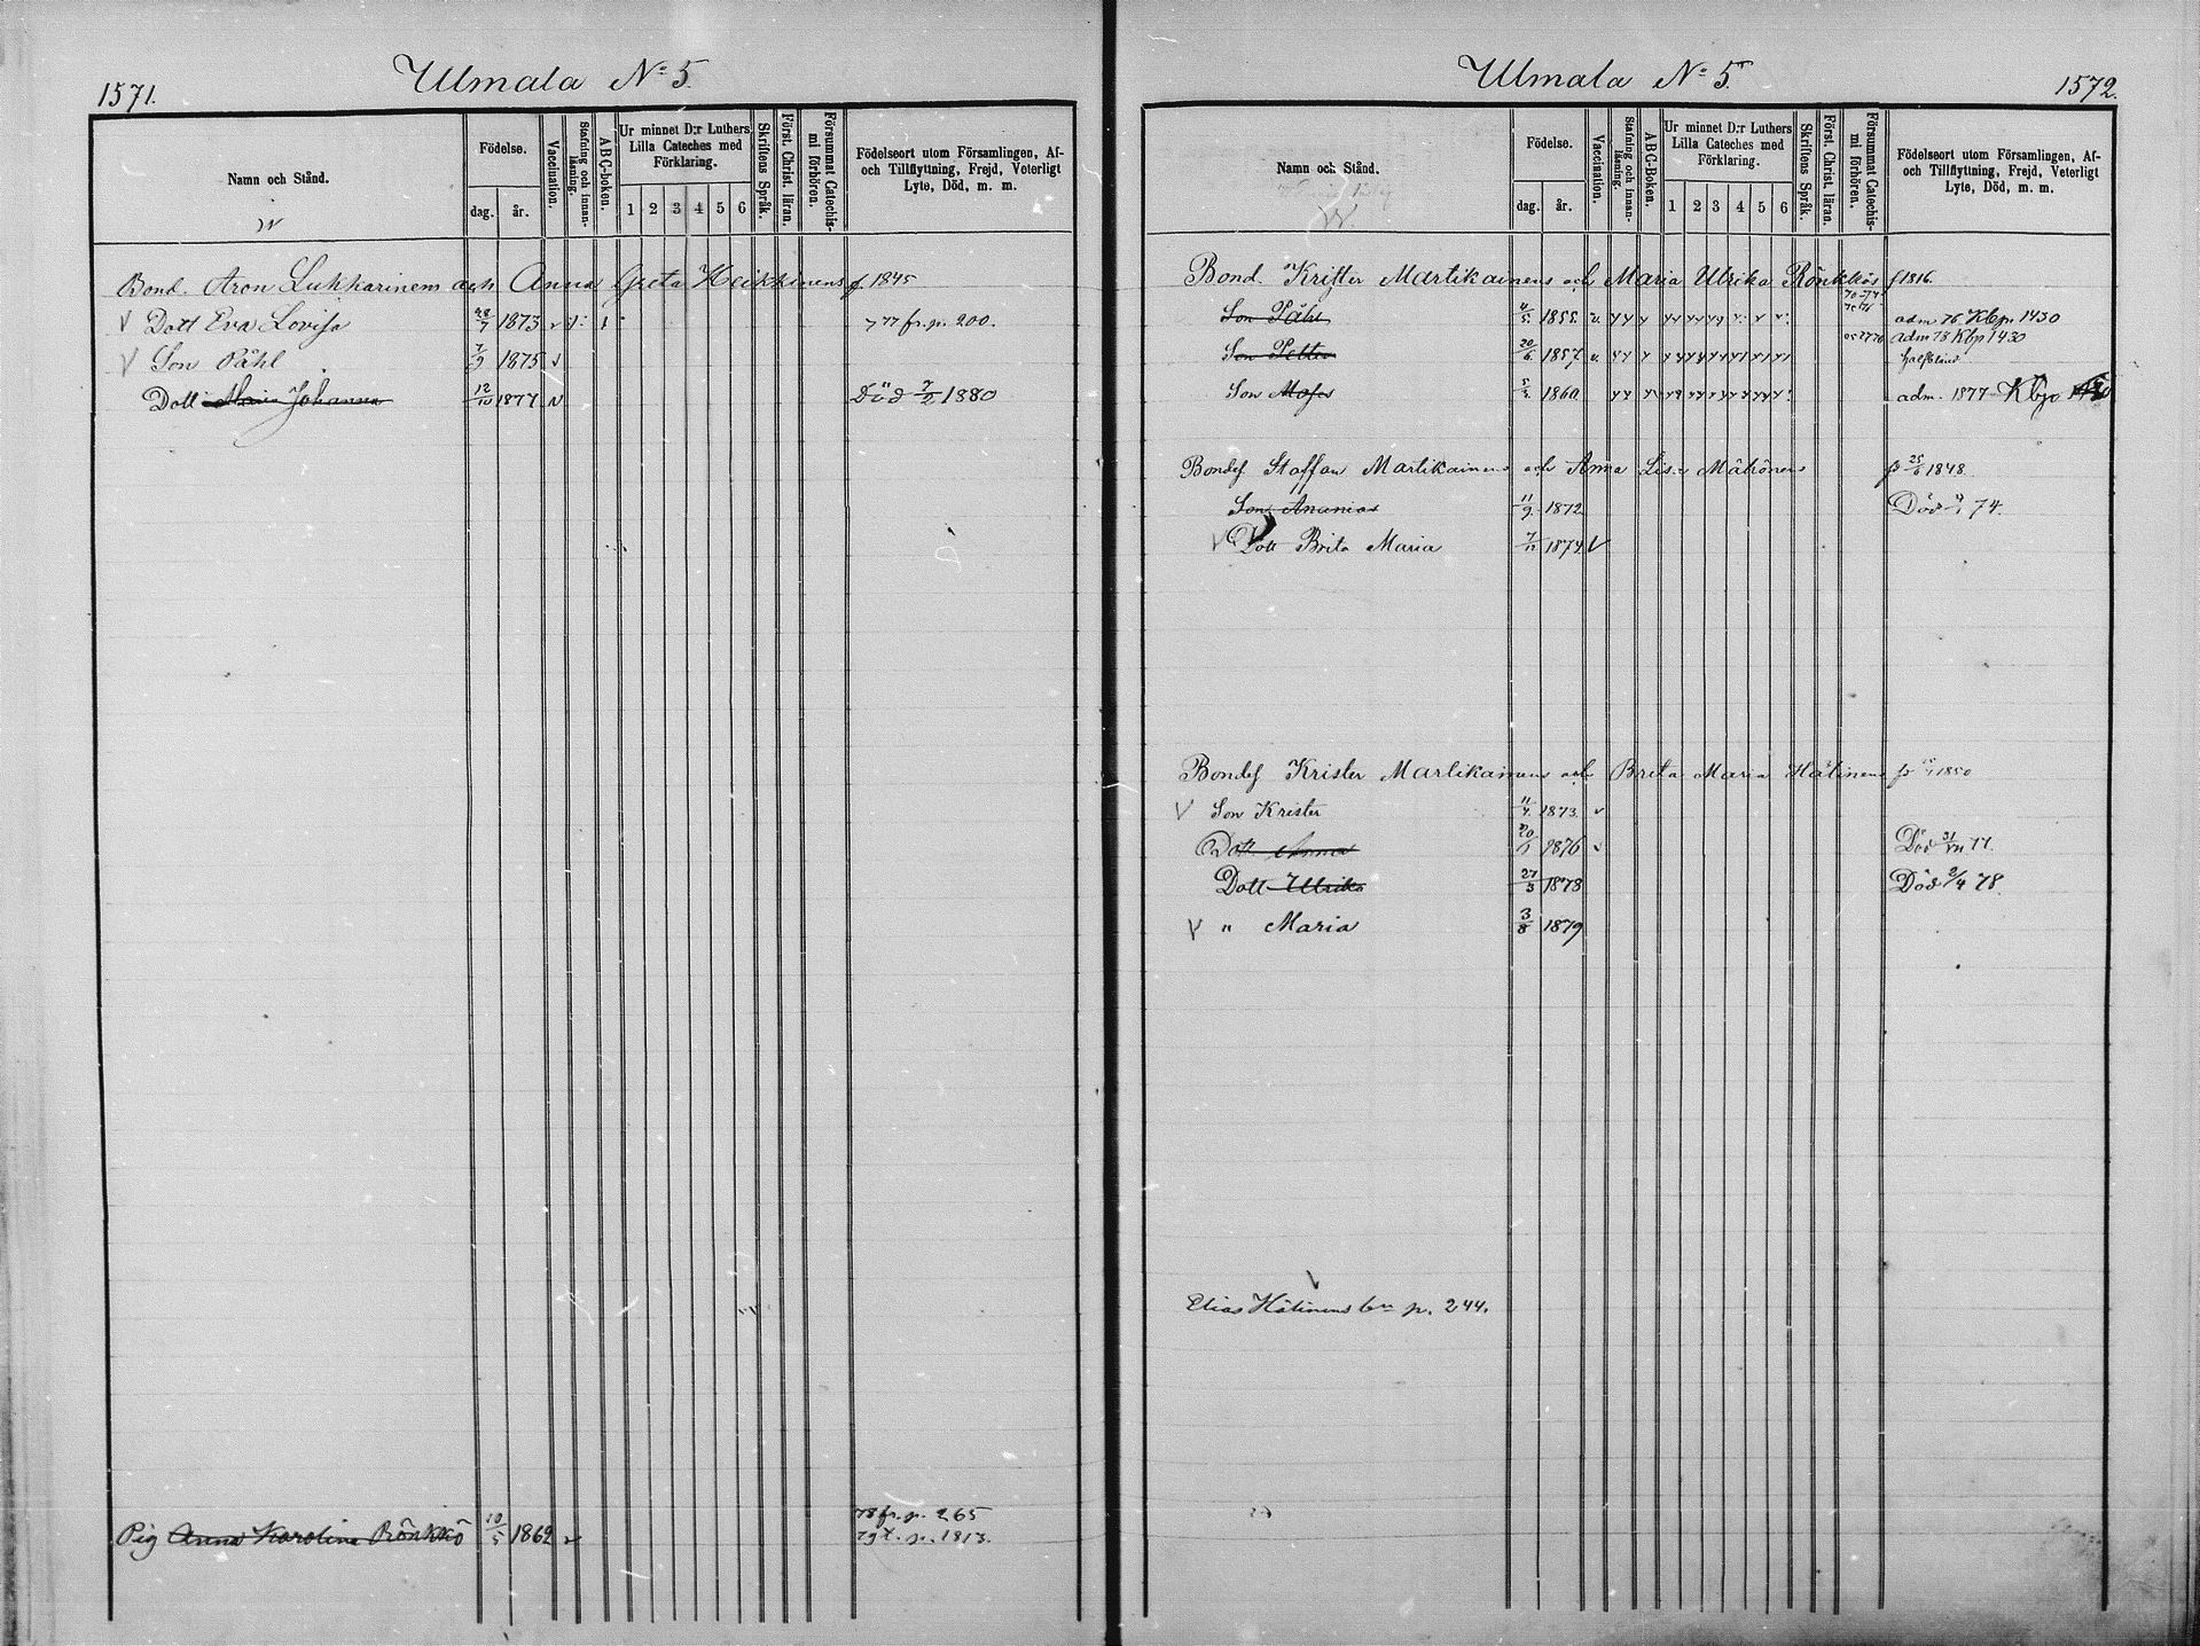 1571.
Ulmala No 5.
Namn och Stånd.
Födelse.
dag.
år.
Vaccination.
Stafning och innan-läsning.
ABC-boken.
Ur minnet D:r Luthers Lilla Cateches med Förklaring.
1 2 3 4 5 6
Skriftens Språk.
Först. Christ. läran.
Försummat Catechis-mi förhören.
Födelseort utom Församlingen, Af-
och Tillflyttning, Frejd, Veterligt
Lyte, Död, m. m.
Bond. Aron Lukkarinens och Anna Greta Heikkinens f. 1845
Dott Eva Lovisa 28/7 1873 77 fr. p. 200.
Son Påhl 7/9 1875
Dott Maria Johanna 12/10 1877 Död 7/2 1880
Pig Anna Karolina Rönkkö 10/5 1862 78 fr. p. 265
79 t. p. 1813.
Ulmala No 5.
1572.
Namn och Stånd.
Födelse.
dag.
år.
Vaccination.
Stafning och innan-läsning.
ABC-Boken.
Ur minnet D:r Luthers Lilla Cateches med Förklaring.
1 2 3 4 5 6
Skriftens Språk.
Först. Christ. läran.
Försummat Catechis-mi förhören.
Födelseort utom Församlingen, Af-
och Tillflyttning, Frejd, Veterligt
Lyte, Död, m. m.
Bond. Krister Martikainens och Maria Ulrika Rönkkös f 1816.
Son Påhl 4/5 1855. adm 76 Kbp. 1430
Son Petter 20/6 1857 adm 78 Kbp 1430
halfblind
Son Moses 1860 adm. 1877 Kbp
Bondes Staffan Martikainens och Anna Lisa Mähönens f 25/6 1848.
Son Ananias 11/9 1872 Död 74.
Dott Brita Maria 1874
Bondes Krister Martikainens och Brita Maria Hätinens f 1850
Son Krister 11/4 1873
Dott Anna 20/1 1876 Död 31/VII 77.
Dott Ulrika 27/3 1878 Död 2/4 78.
" Maria 3/8 1879
Elias Hätinens p. 244.